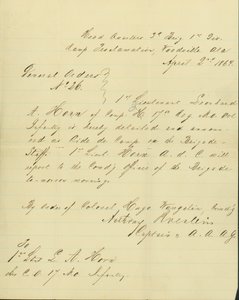 Head Quarters 3d Brig 1st Div
Camp Proclamation, Woodville Ala
April 2nd 1864.
General Orders
No 26.
1st Lieutenant Leonhard
A. Horn of Comp H. 17th Reg Mo Vol
Infantry is hereby detached and announ-
ced as Aide de Camp on the Brigade
Staff. 1st Lieut Horn A. d. C. will
report to the Comdg Officer of the Brigade
to-morrow morning.
By order of Colonel Hugo Wangelin Comdg
Captain & A. A. A. G.
To
1st Lieut L. A. Horn
C. O. 17th Mo Infantry